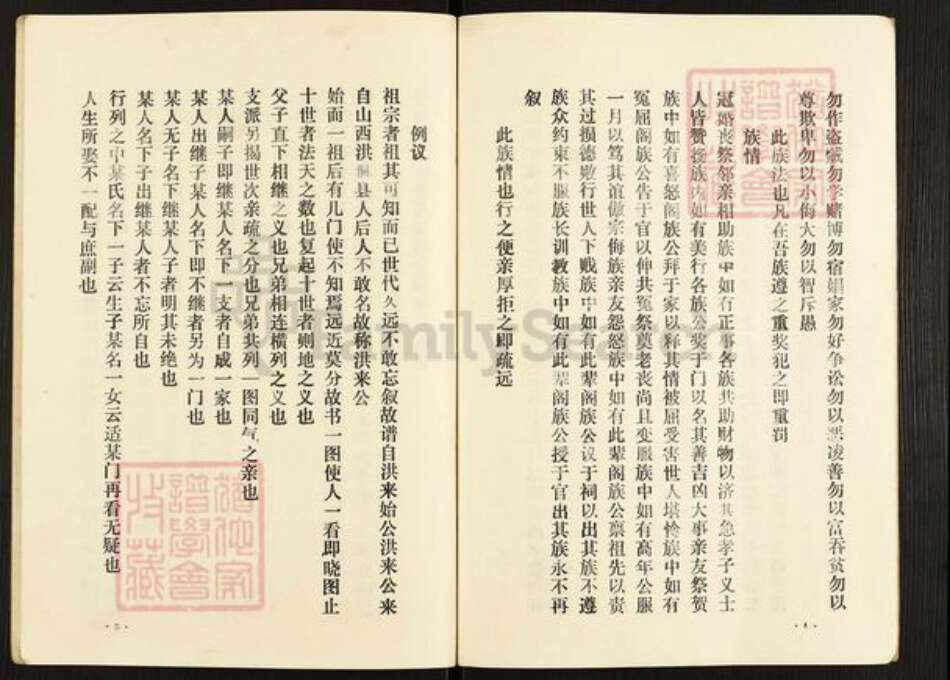 勿作盗贼勿学赌博勿宿娼家勿好争讼勿以恶凌善勿以富吞贫勿以
尊欺卑勿以小侮大勿以智斥愚
此族法也凡在吾族遵之重奖犯之即重罚
族情
冠婚丧祭邻亲相助族中如有正事各族共助财物以济其急孝子义士
人皆赞授族内如有美行各族公奖于门以名其善吉凶大事亲友祭贺
族中如有喜怒阁族公拜于家以释其情被屈受害世人堪怜族中如有
冤屈阁族公告于官以伸共冤祭奠老丧尚且变服族中如有高年公服
一月以笃其谊傲宗侮族亲友怨怒族中如有此辈阁族公禀祖先以责
其过损德败行世人下贱族中如有此辈阁族公议于祠以出其族不遵
族众约束不服族长训教族中如有此辈阁族公授于官出其族永不再
叙
此族情也行之便亲厚拒之即疏远
·4·
例议
祖宗者祖其可知而已世代久远不敢忘叙故谱自洪来始公洪来公来
自山西洪洞县人后人不敢名故称洪来公
始而一祖后有几门使不知焉远近莫分故书一图使人一看即晓图止
十世者法天之数也复起十世者则地之义也
父子直下相继之义也兄弟相连横列之义也
支派另揭世次亲疏之分也兄弟共列一图同气之亲也
某人嗣子即继某人名下一支者自成一家也
某人出继子某人名下即不继者另为一门也
某人无子名下继某人子者明其未绝也
某人名下子出继某人者不忘所自也
行列之中某氏名下一子云生子某名一女云适某门再看无疑也
人生所娶不一配与庶副也
FamilySearch